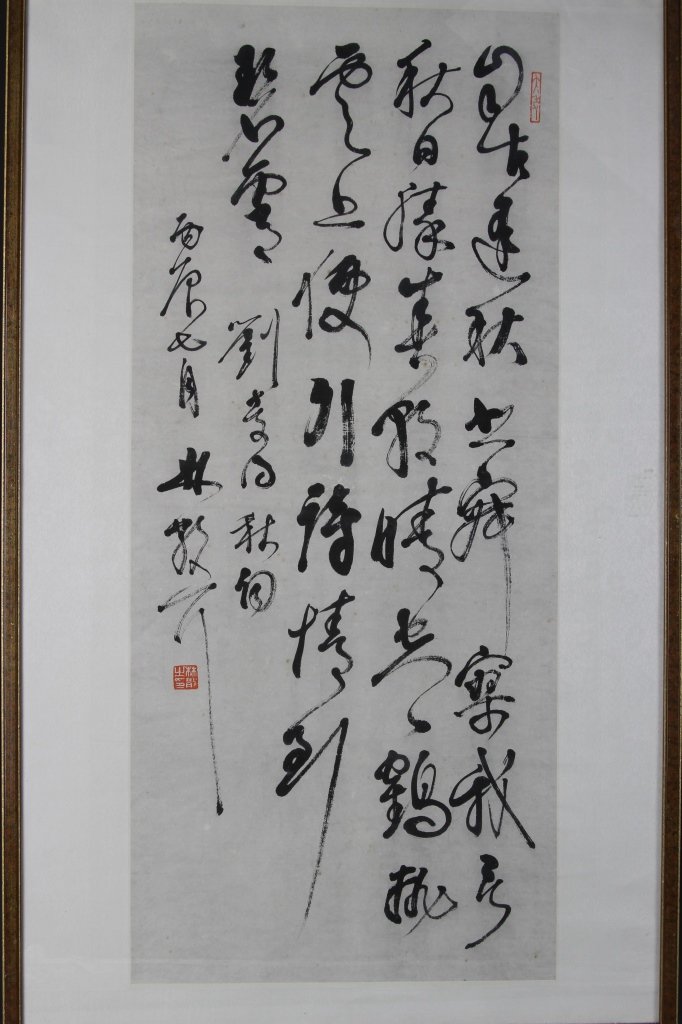 自古逢秋悲寂寥我言
秋日勝春朝晴空一鶴排
雲上便引詩情到
碧霄 劉夢得秋詞
丙辰七月 林散耳
林散之印